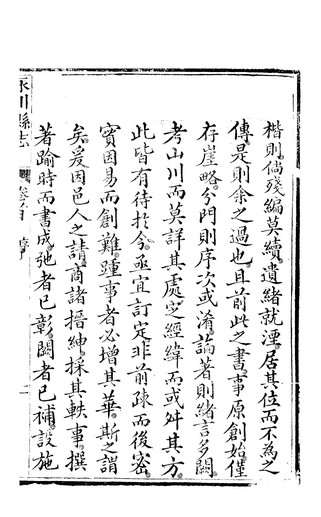 楷則倘殘編莫續遺緒就湮居其位而不為之
傳是則余之過也且前此之書事原創始僅
存崖略分門則序次或淆論著則緒言多闕
考山川而莫詳其處定經緯而或舛其方
此皆有待於今亟宜訂定非前疎而後密
實因易而創難踵事者必增其華斯之謂
矣爰因邑人之請商諸搢紳採其軼事撰
著踰時而書成弛者已彰闕者已補設施
永川縣志 卷首 序